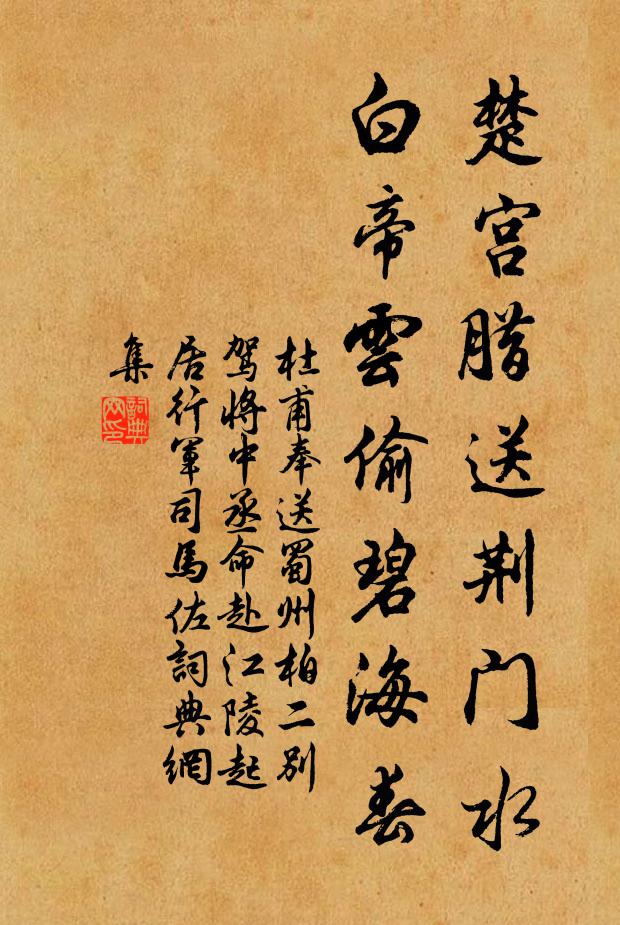 楚宫腊送荆门水
白帝雲偷碧海春
杜甫奉送蜀州柏二别
驾将中丞命赴江陵起
居行軍司馬佐詞典網
集
詞典網印